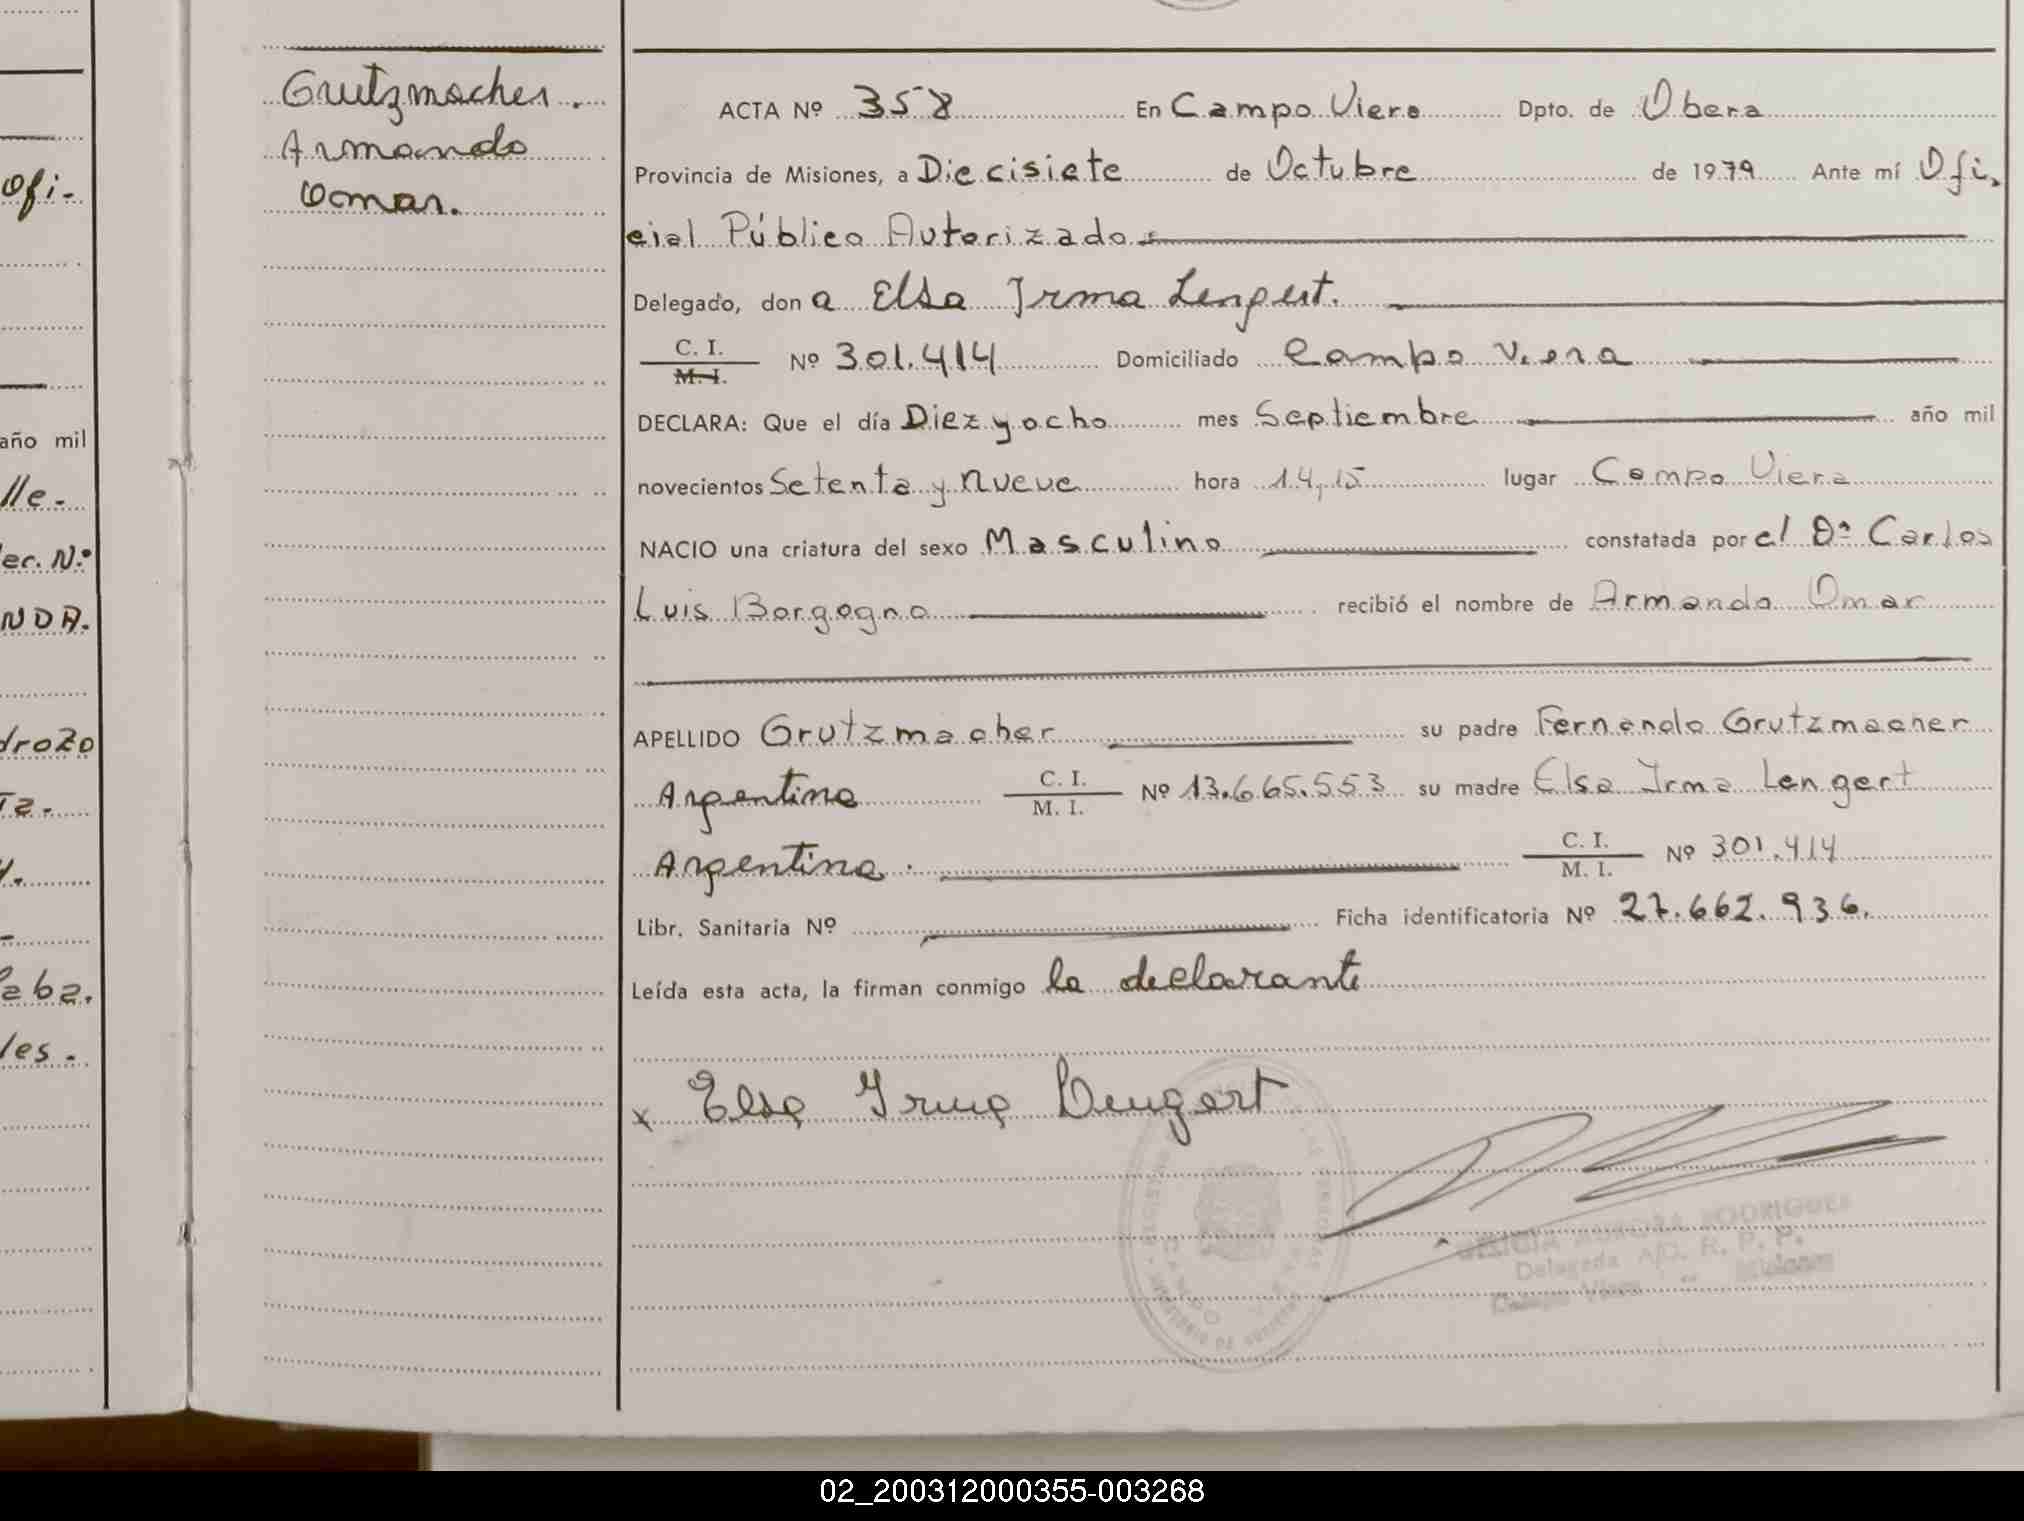 Grutzmacher.
Armando
Omar.
ACTA Nº 358 En Campo Viera Dpto. de Obera
Provincia de Misiones, a Diecisiete de Octubre de 1979 Ante mí Ofi,
cial Público Autorizado
Delegado, don a Elsa Irma Lengert.
C. I.
M. I.
Nº 301.414 Domiciliado Campo Viera
DECLARA: Que el día Diez y ocho mes Septiembre año mil
novecientos Setenta y nueve hora 14,15 lugar Campo Viera
NACIO una criatura del sexo Masculino constatada por el Dº Carlos
Luis Borgogno recibió el nombre de Armando Omar
APELLIDO Grutzmacher su padre Fernando Grutzmacher
Argentino C. I.
M. I.
Nº 13.665.553 su madre Elsa Irma Lengert
Argentina. C. I.
M. I.
Nº 301.414
Libr. Sanitaria Nº Ficha identificatoria Nº 27.662.936.
Leída esta acta, la firman conmigo la declarante
x Elsa Irma Lengert
AURORA RODRIGUES
Delegada A/D. R. P. P.
Campo Viera Misiones
Ofi.
año mil
lle.
ec. Nº
NDA.
drozo
Ta.
y.
eba.
les.
02_200312000355-003268